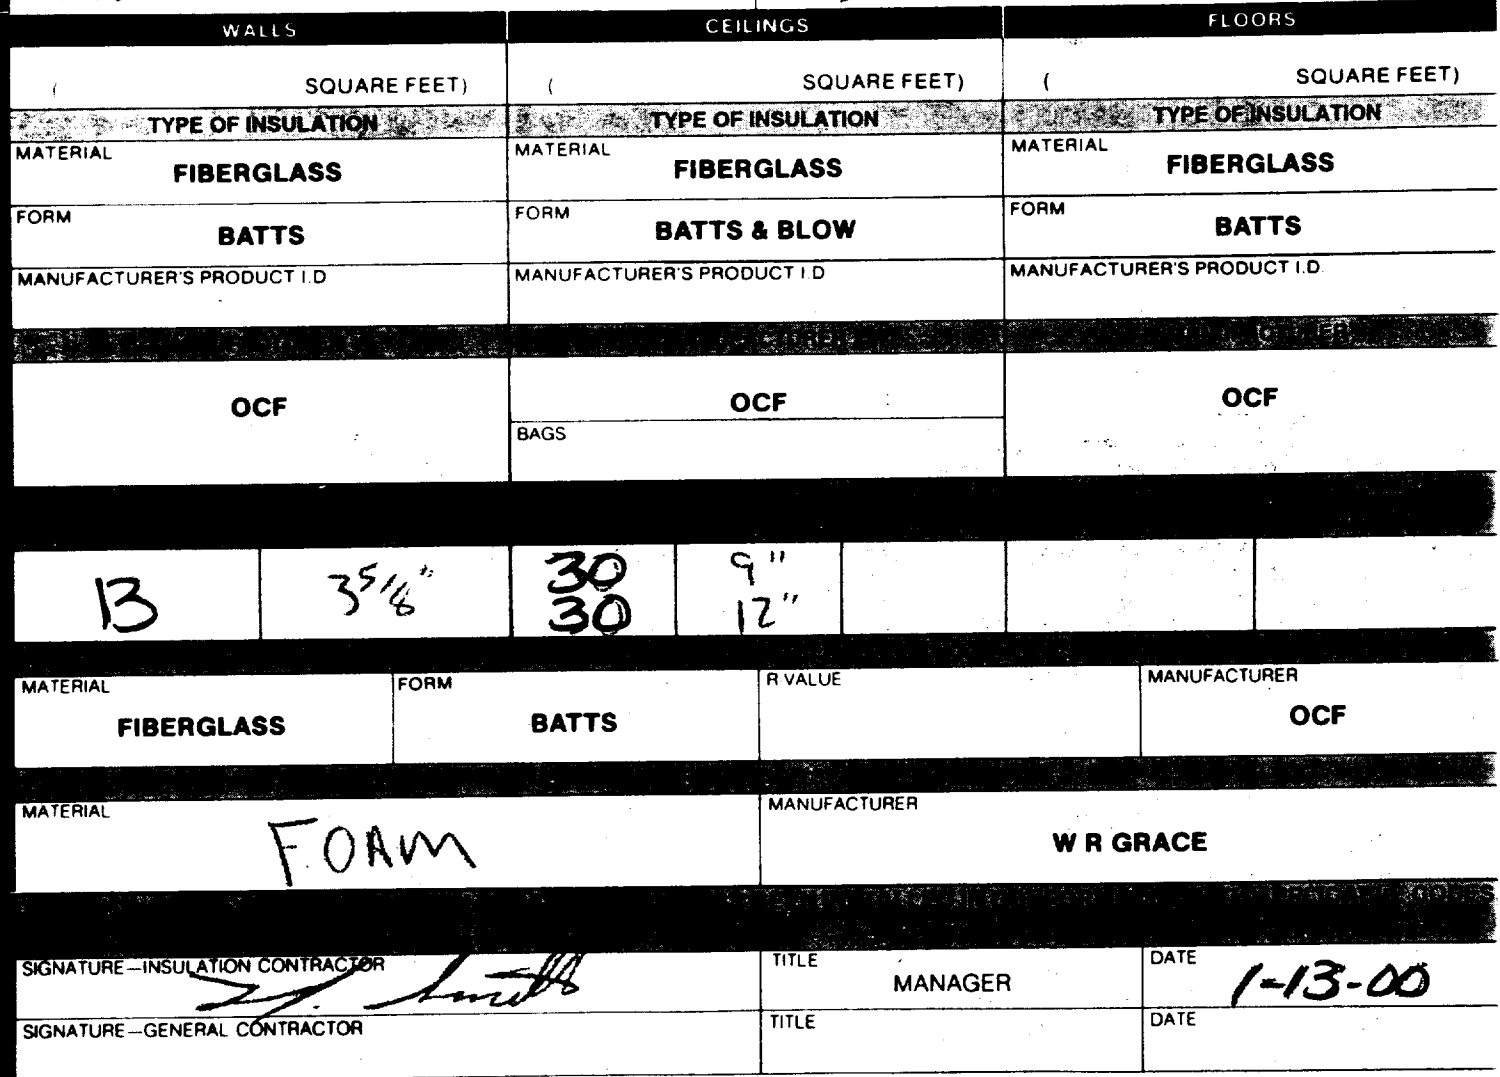 WALLS CEILINGS FLOORS
( SQUARE FEET) ( SQUARE FEET) ( SQUARE FEET)
TYPE OF INSULATION TYPE OF INSULATION TYPE OF INSULATION
MATERIAL MATERIAL MATERIAL
FIBERGLASS FIBERGLASS FIBERGLASS
FORM FORM FORM
BATTS BATTS & BLOW BATTS
MANUFACTURER'S PRODUCT I.D MANUFACTURER'S PRODUCT I.D MANUFACTURER'S PRODUCT I.D.
OCF OCF OCF
BAGS
13 3 5/8" 30 9"
30 12"
MATERIAL FORM R VALUE MANUFACTURER
FIBERGLASS BATTS OCF
MATERIAL MANUFACTURER
FOAM W R GRACE
SIGNATURE—INSULATION CONTRACTOR TITLE DATE
MANAGER 1-13-00
SIGNATURE—GENERAL CONTRACTOR TITLE DATE